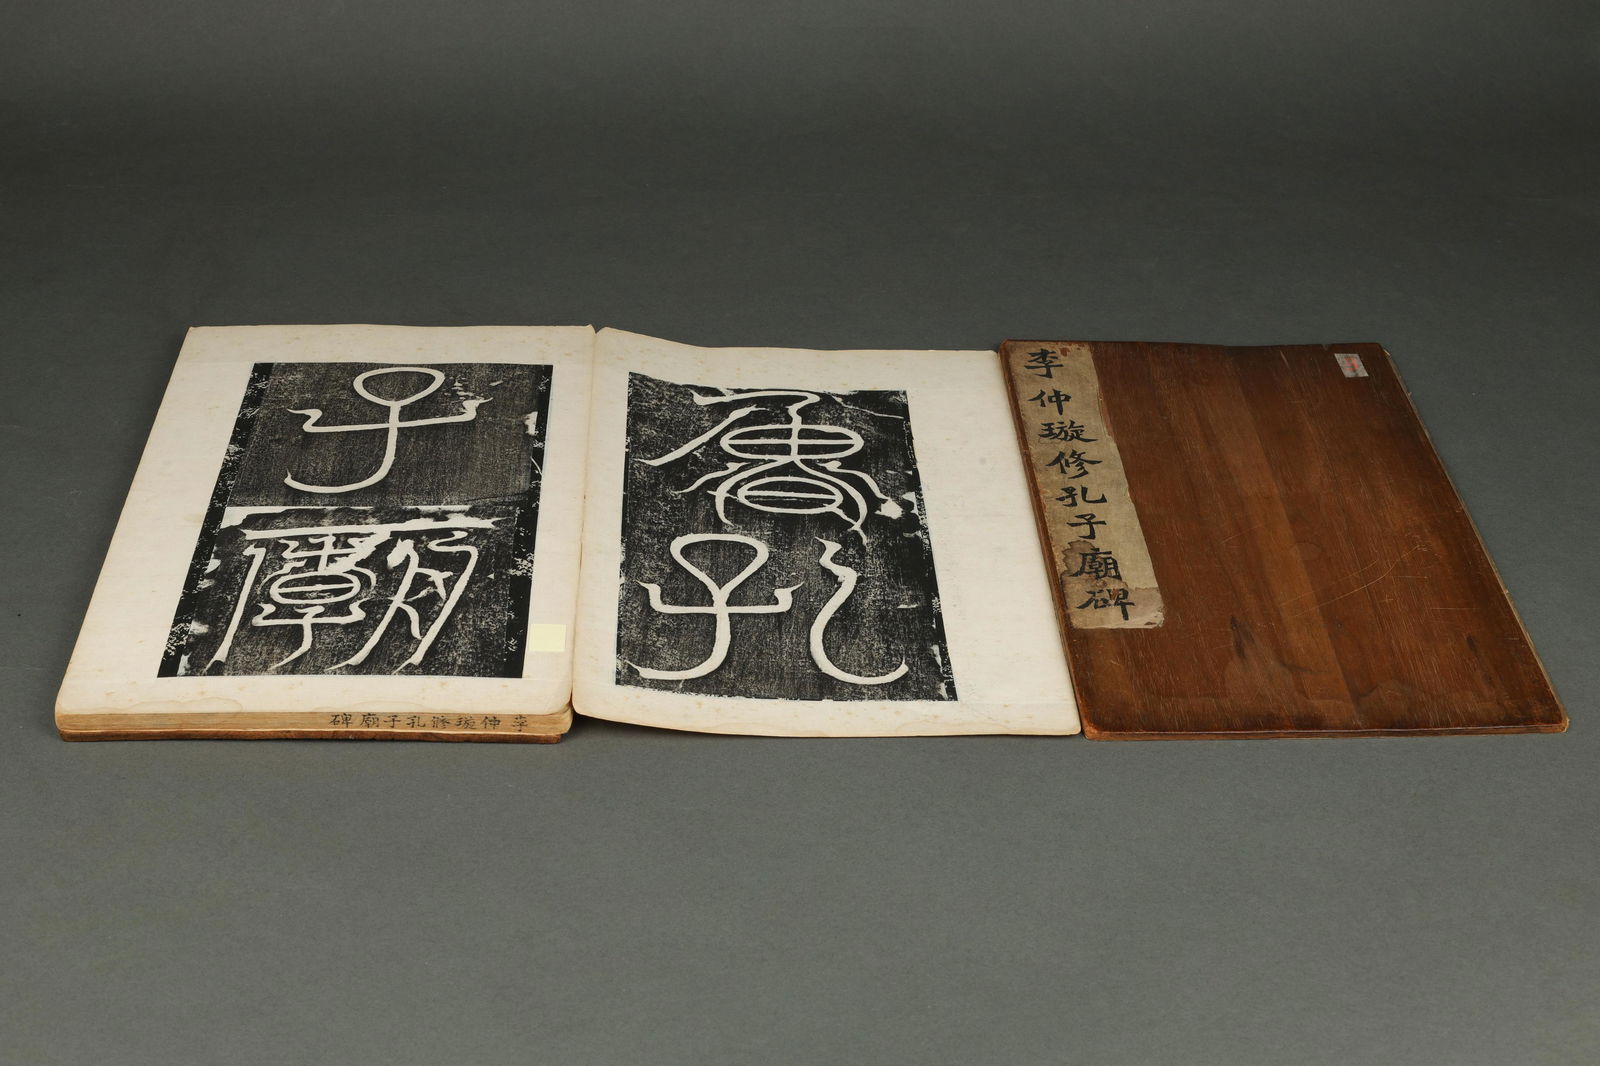 李仲璇修孔子廟碑
魯孔
子廟
李仲璇修孔子廟碑